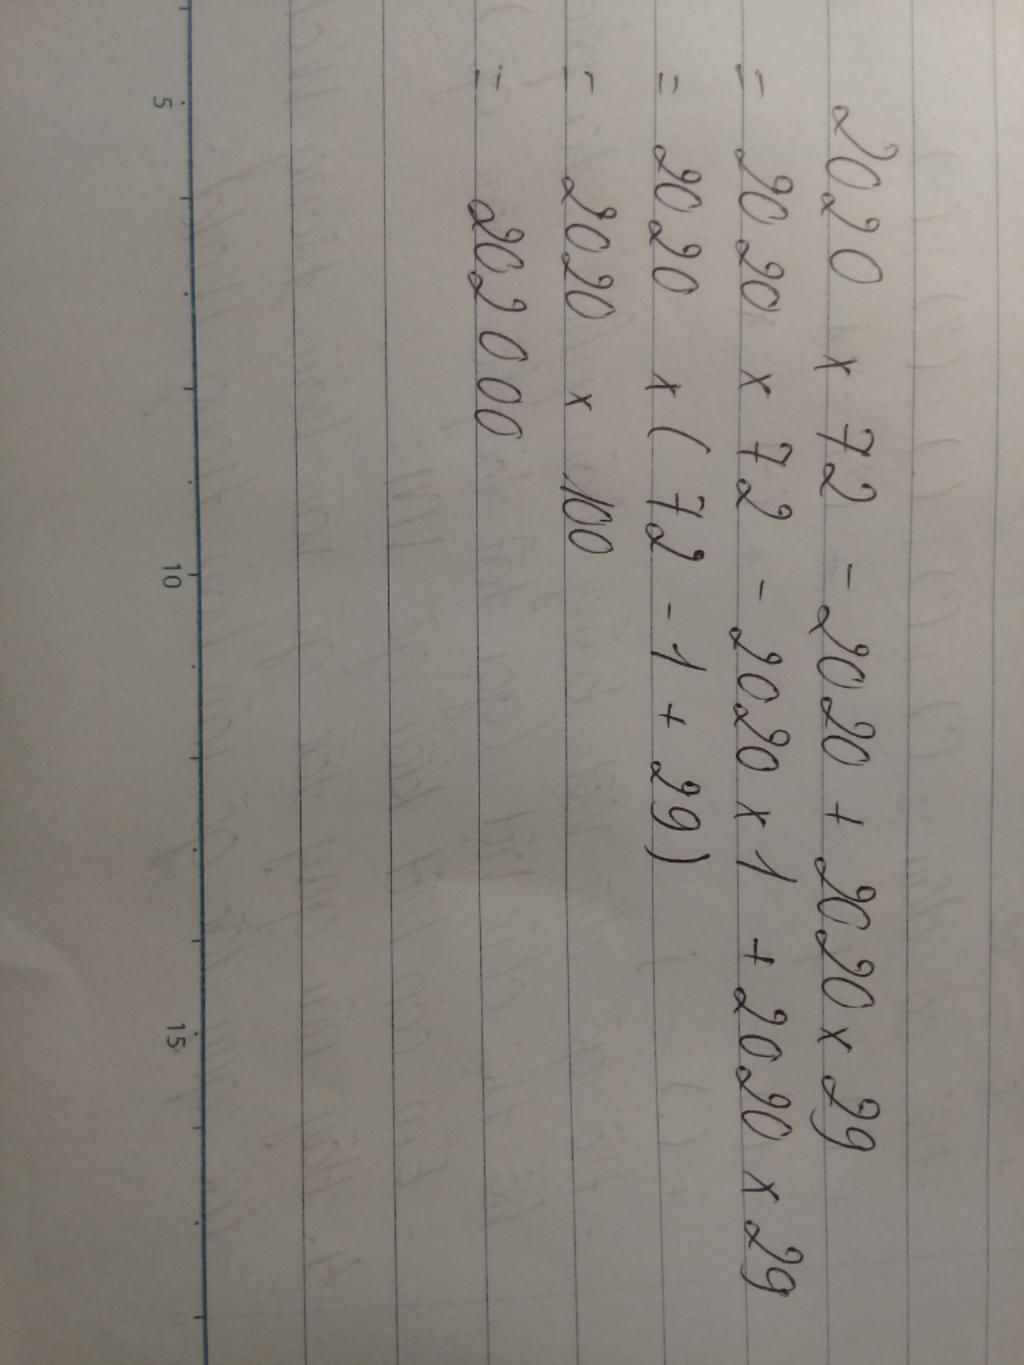 2020 x 72 - 2020 + 2020 x 29
= 2020 x 72 - 2020 x 1 + 2020 x 29
= 2020 x ( 72 - 1 + 29)
= 2020 x 100
= 202000
5 10 15